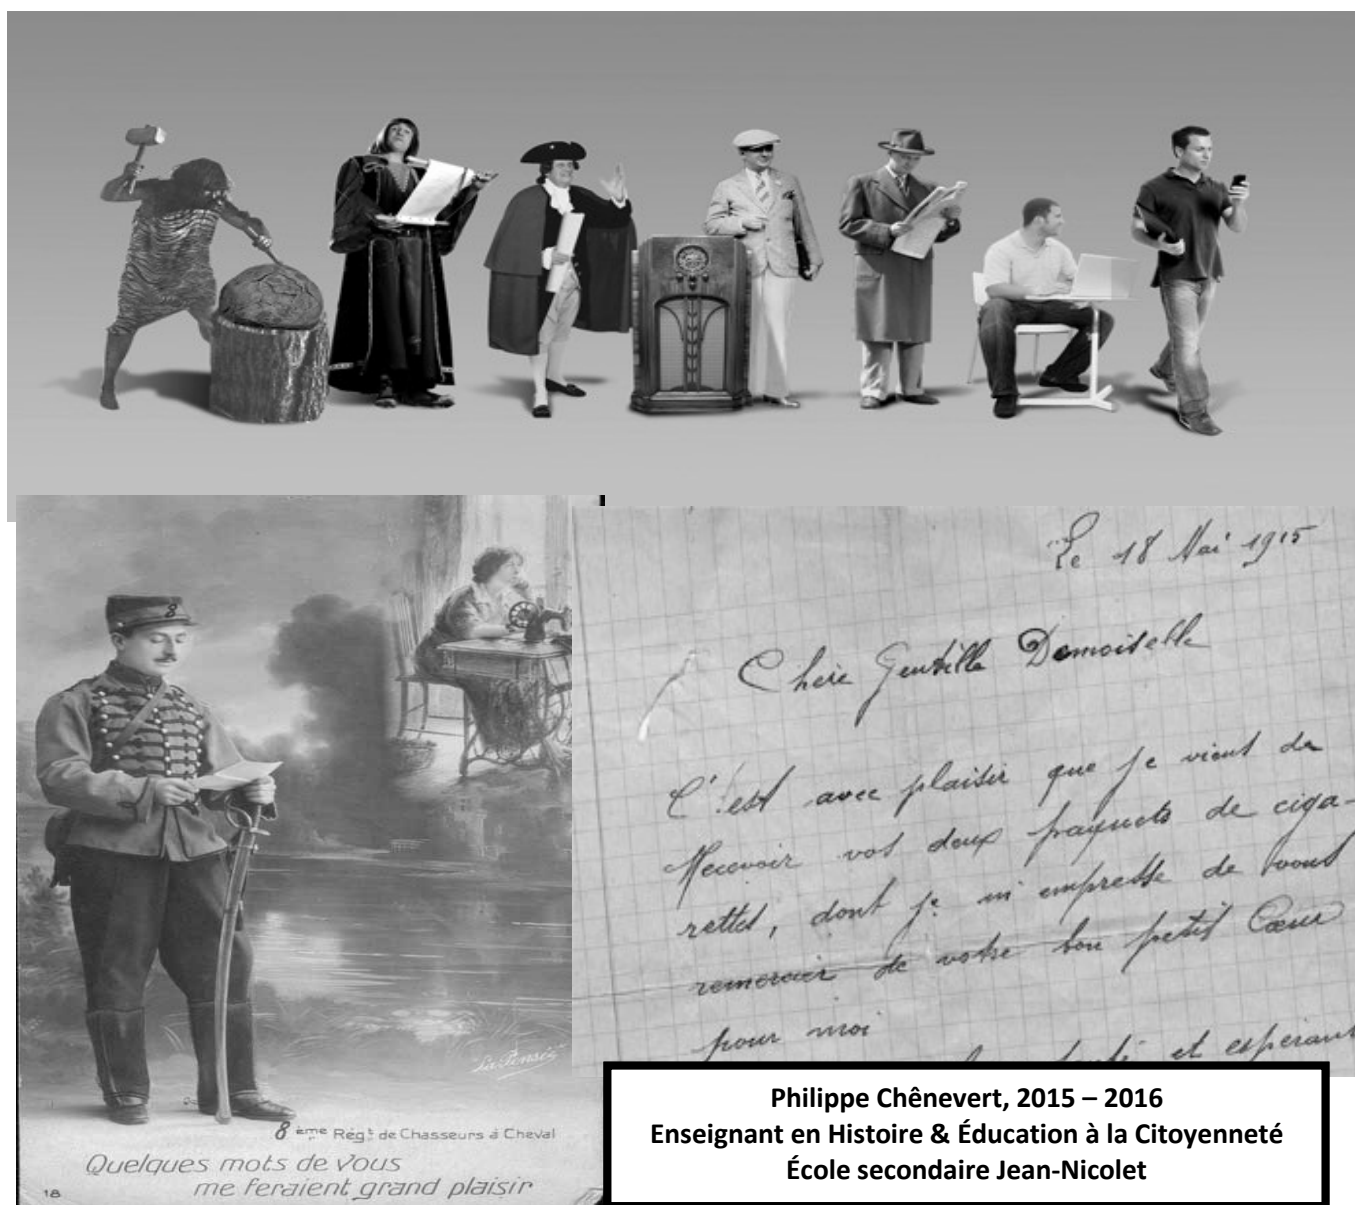 Le 18 Mai 1915
Chère Gentille Demoiselle
C'est avec plaisir que je vient de
Recevoir vos deux paquets de ciga-
rettes, dont je m'empresse de vous
remercier de votre bon petit Cœur
pour moi
et espérant
La Pensée
8ème Régt de Chasseurs à Cheval
Quelques mots de Vous
me feraient grand plaisir
18
Philippe Chênevert, 2015 – 2016
Enseignant en Histoire & Éducation à la Citoyenneté
École secondaire Jean-Nicolet